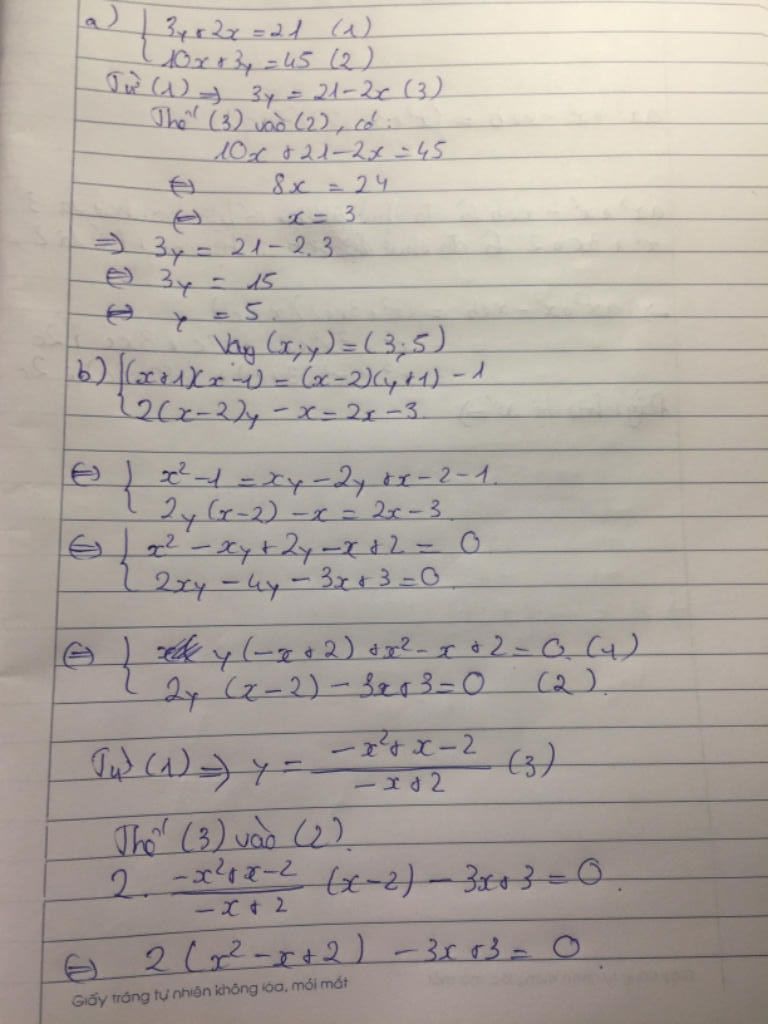 a) { 3y+2x=21 (1)
10x+3y=45 (2)
Từ (1) ⇒ 3y = 21-2x (3)
Thế (3) vào (2), có:
10x +21-2x=45
⇔ 8x = 24
⇔ x = 3
⇒ 3y = 21-2.3
⇔ 3y = 15
⇔ y = 5.
Vậy (x;y)=(3;5)
b) { (x+1)(x-1) = (x-2)(y+1) -1
2(x-2)y - x = 2x-3.
⇔ { x²-1 = xy-2y+x-2-1.
2y(x-2) -x = 2x-3.
⇔ { x² - xy+2y-x+2 = 0
2xy -4y -3x+3=0.
⇔ { y(-x+2) +x²-x+2=0. (1)
2y (x-2) -3x+3=0 (2).
Từ (1) ⇒ y = \frac{-x²+x-2}{-x+2} (3)
Thế (3) vào (2).
2. \frac{-x²+x-2}{-x+2} (x-2) -3x+3=0.
⇔ 2(x²-x+2) -3x+3= 0.
Giấy trắng tự nhiên không lóa, mỏi mắt